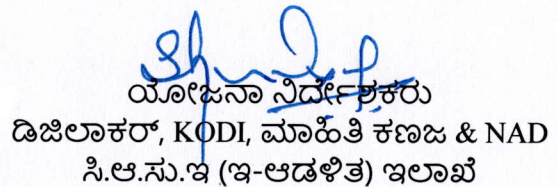 ಯೋಜನಾ ನಿರ್ದೇಶಕರು
ಡಿಜಿಲಾಕರ್, KODI, ಮಾಹಿತಿ ಕಣಜ & NAD
ಸಿ.ಆ.ಸು.ಇ (ಇ-ಆಡಳಿತ) ಇಲಾಖೆ